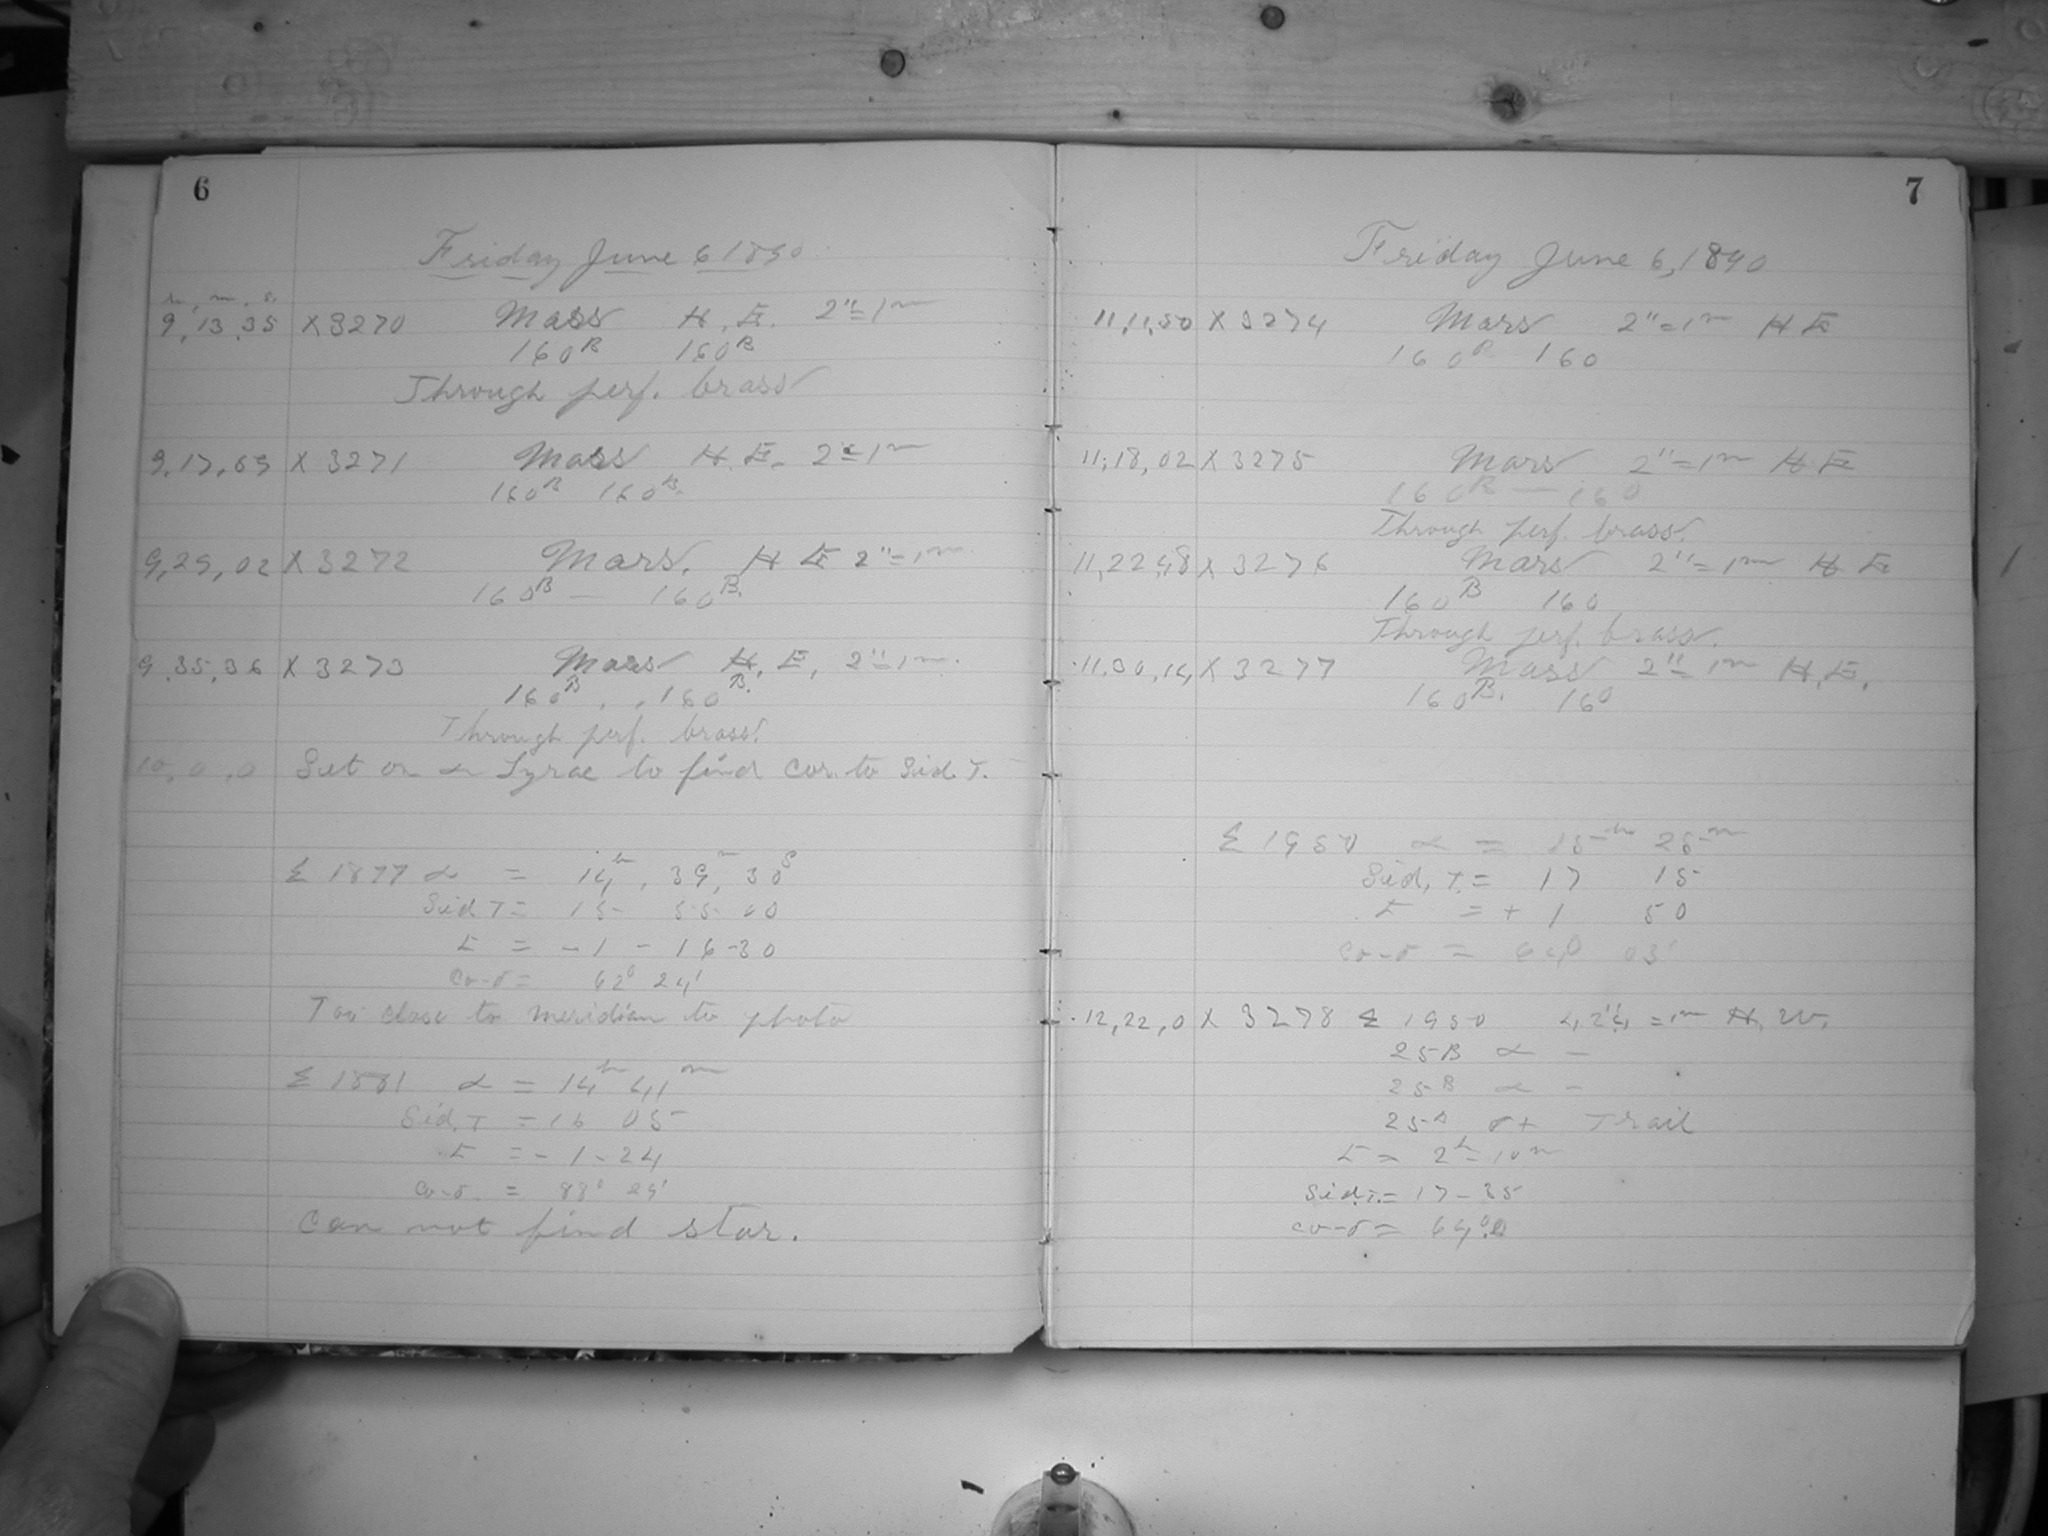 6
Friday June 6 1890
h. m. s.
9,13.35 X3270 Mars H.E. 2"=1m
160B 160B
Through perf. brass
9,17,59 X 3271 Mars H.E. 2"=1m
160B 160B.
9,29,02 X 3272 Mars. H E 2"=1m
160B — 160B.
9.35,36 X 3273 Mars H.E, 2"=1m.
160B , , 160B.
Through perf. brass.
10,0,0 Set on α Lyrae to find Cor. to Sid. T.
Σ 1877 α = 14h, 39m, 30s
Sid T = 15 55 00
t = -1 - 16-30
Co-δ = 62° 24'
Too close to meridian to photo
Σ 1881 α = 14h 41m
Sid. T = 16 05
t = - 1 - 24
Co-δ. = 88° 29'
Can not find star.
7
Friday June 6, 1890
11,11,50 X 3274 Mars 2"=1m H E
160B 160
11,18,02 X 3275 Mars 2"=1m H E
160B — 160
Through perf. brass.
11,22,48 X 3276 Mars 2"=1m H E
160B 160
Through perf. brass.
11.30,14, X 3277 Mars 2"=1m H.E.
160B. 160
Σ 1950 α = 15h 25m
Sid, T. = 17 15
t = + 1 50
Co-δ = 64° 03'
12,22,0 X 3278 Σ 1950 4,2"4, =1m H. W.
25B α -
25B α -
25 δ+ Trail
t = 2h-10m
Sid.T. = 17-35
co-δ = 64°.0